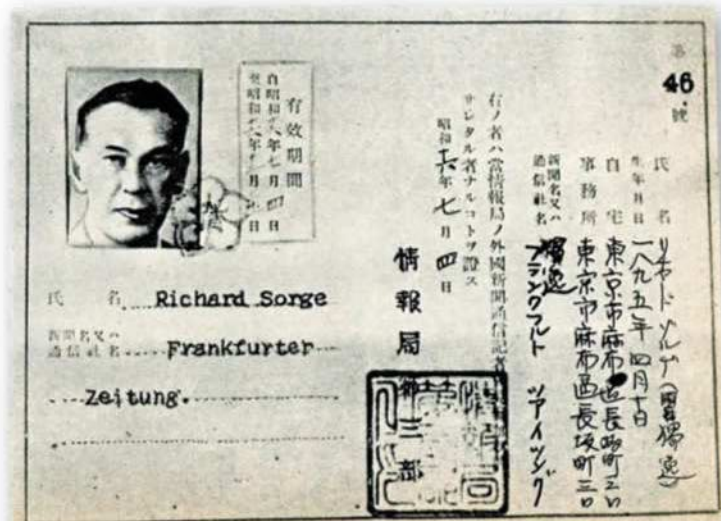 第
46.
號
氏 名 リヒヤード ゾルゲ (國 獨逸)
生年月日 一八九五年 四月 十日
自 宅 東京市麻布區長坂町三〇
事務所 東京市麻布區長坂町三〇
新聞名又ハ
通信社名
獨逸
フランクフルト ツアイツング
右ノ者ハ當情報局ノ外國新聞通信記者
サレタル者ナルコトヲ證ス
昭和 十六年 七 月 四日
情報局第三部
有效期間
自昭和十六年七月四日
至昭和
氏 名 Richard Sorge
新聞名又ハ
通信社名 Frankfurter
Zeitung.